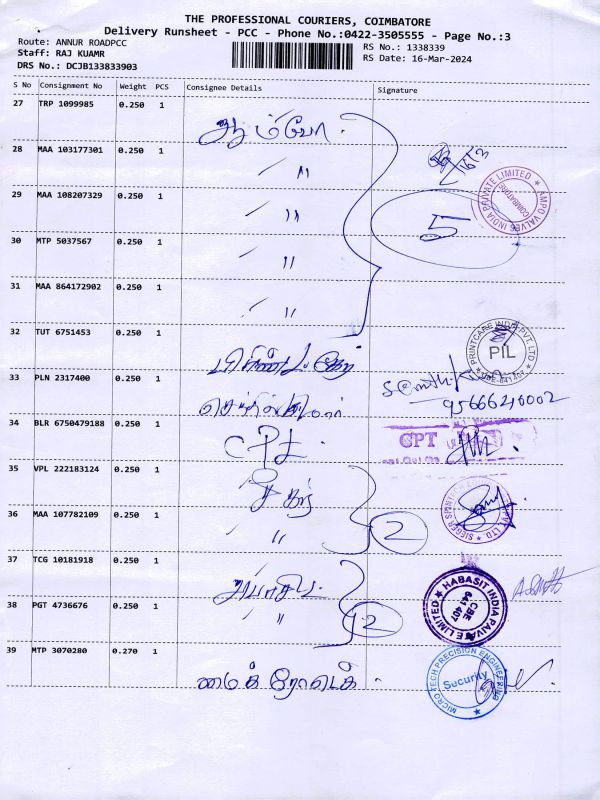 THE PROFESSIONAL COURIERS, COIMBATORE
Delivery Runsheet - PCC - Phone No.:0422-3505555 - Page No.:3
Route: ANNUR ROADPCC
RS No.: 1338339
Staff: RAJ KUAMR
RS Date: 16-Mar-2024
DRS No.: DCJB133833903
S No Consignment No Weight PCS Consignee Details Signature
27 TRP 1099985 0.250 1
ஆம்வோ.
28 MAA 103177301 0.250 1
〃
16/3
29 MAA 108207329 0.250 1
AMPO VALVES INDIA PRIVATE LIMITED
COIMBATORE
〃 5
30 MTP 5037567 0.250 1
〃
31 MAA 864172902 0.250 1
〃
32 TUT 6751453 0.250 1
PRINTCARE INDIA PVT. LTD
PIL
CBE-641 407
33 PLN 2317400 0.250 1
95666210002
34 BLR 6750479188 0.250 1
CPT
CPT
35 VPL 222183124 0.250 1
36 MAA 107782109 0.250 1
〃 2
37 TCG 10181918 0.250 1
HABASIT INDIA PAIVATE LIMITED
CBE
641 407
38 PGT 4736676 0.250 1
〃 2
39 MTP 3070280 0.270 1
MICRO TECH PRECISION ENGINEERING
Security
மைக்ரோடெக்.